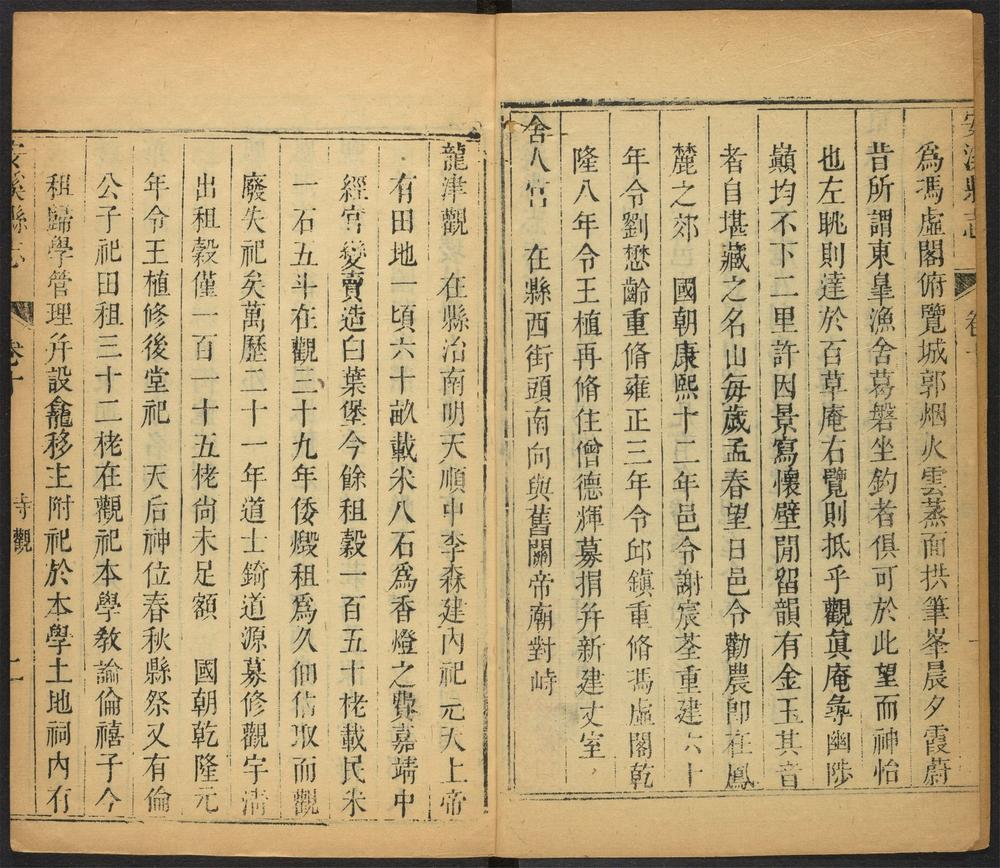 安溪縣志 卷十
為馮虛閣俯覽城郭烟火雲蒸面拱筆峯晨夕霞蔚
昔所謂東臯漁舍葛磐坐釣者俱可於此望而神怡
也左眺則達於百草庵右覽則抵乎觀眞庵彖幽陟
巓均不下二里許因景寫懷壁閒留韻有金玉其音
者自堪藏之名山每歲孟春望日邑令勸農卽在鳳
麓之郊 國朝康熙十二年邑令謝宸荃重建六十
年令劉懋齡重脩雍正三年令邱鎮重脩馮虛閣乾
隆八年令王植再脩住僧德輝募捐幷新建丈室
舍人宮 在縣西街頭南向與舊關帝廟對峙
龍津觀 在縣治南明天順中李森建內祀元天上帝
有田地一頃六十畝載米八石為香燈之費嘉靖中
經官變賣造白葉堡今餘租穀一百五十栳載民米
一石五斗在觀三十九年倭燬租為久佃估取而觀
廢失祀矣萬歷二十一年道士錡道源募修觀宇清
出租穀僅一百一十五栳尙未足額 國朝乾隆元
年令王植修後堂祀 天后神位春秋縣祭又有倫
公子祀田租三十二栳在觀祀本學敎諭倫禧子今
租歸學管理幷設龕移主附祀於本學土地祠內有
安溪縣志 卷十 寺觀 二